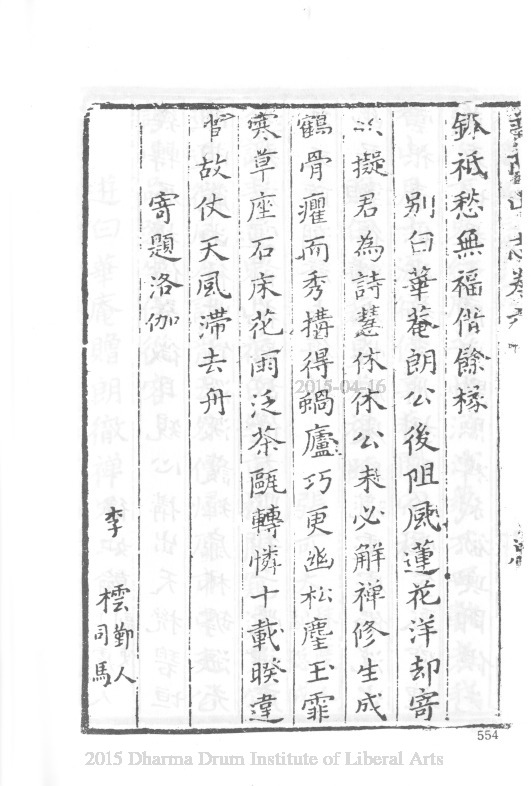 錫祗愁無福借餘椽
別白華菴朗公後阻風蓮花洋却寄
以擬君為詩慧休休公未必解禪修生成
鶴骨癯而秀搆得蝸廬巧更幽松麈玉霏
寒草座石床花雨泛茶甌轉憐十載暌違
昔故仗天風滯去舟
寄題洛伽
李 櫏 鄞人 司馬
2015-04-16
554
2015 Dharma Drum Institute of Liberal Arts